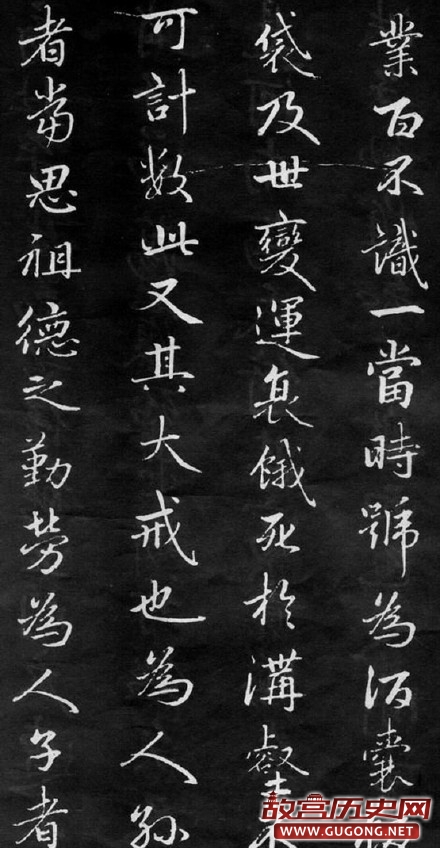 業百不識一當時號為酒囊
袋及世變運衰餓死於溝壑不
可計數此又其大戒也為人孫
者當思祖德之勤勞為人子者
故宫历史网
WWW.GUGONG.NET